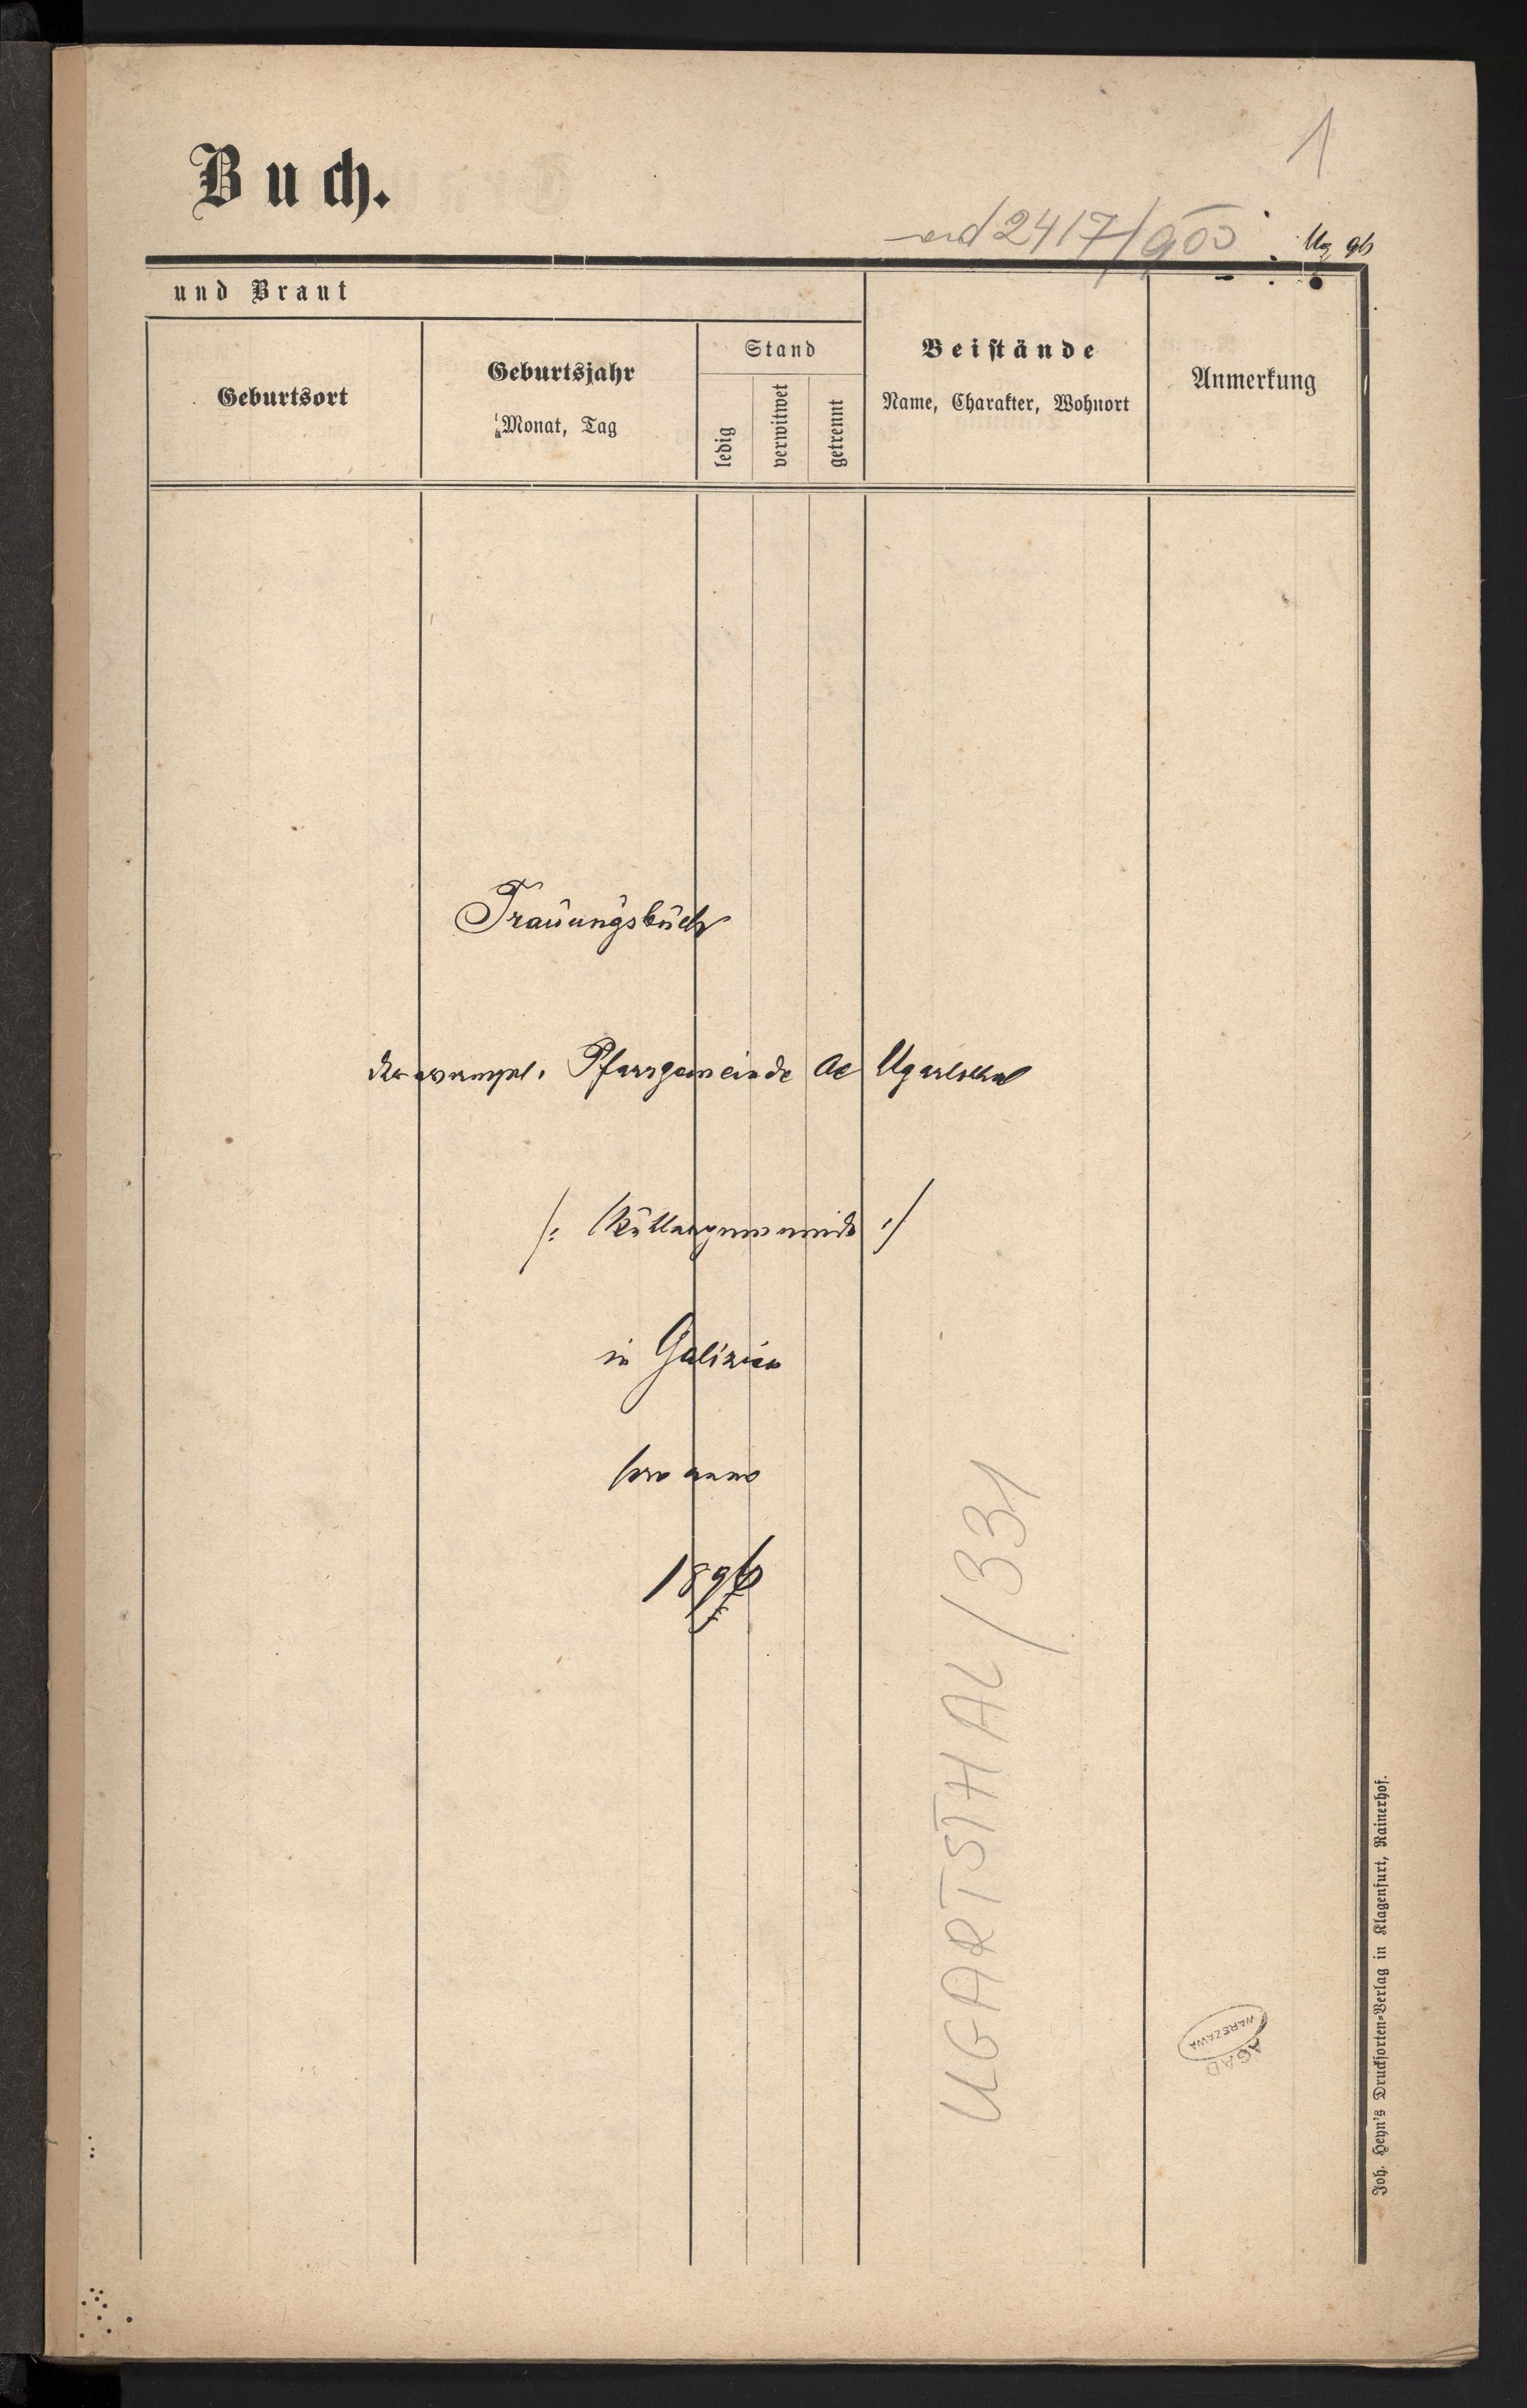 1
Buch.
ad 2417/900
Ug 96
und Braut
Geburtsort
Geburtsjahr
Monat, Tag
Stand
ledig
verwitwet
getrennt
Beistände
Name, Charakter, Wohnort
Anmerkung
Trauungsbuch
der evangel. Pfarrgemeinde AC Ugartsthal
/: Muttergemeinde :/
in Galizien
pro anno
1896
UGARTSTHAL/331
AGAD
WARSZAWA
Joh. Heyn's Drucksorten-Verlag in Klagenfurt, Rainerhof.